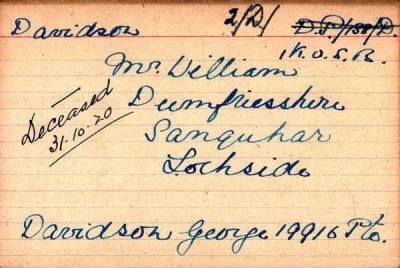 Davidson
2/D/
D.P./158/D.
1 K.O.S.B.
Mr. William
Dumfriesshire
Sanquhar
Lochside
Deceased
31.10.20
Davidson George 19916 Pte.